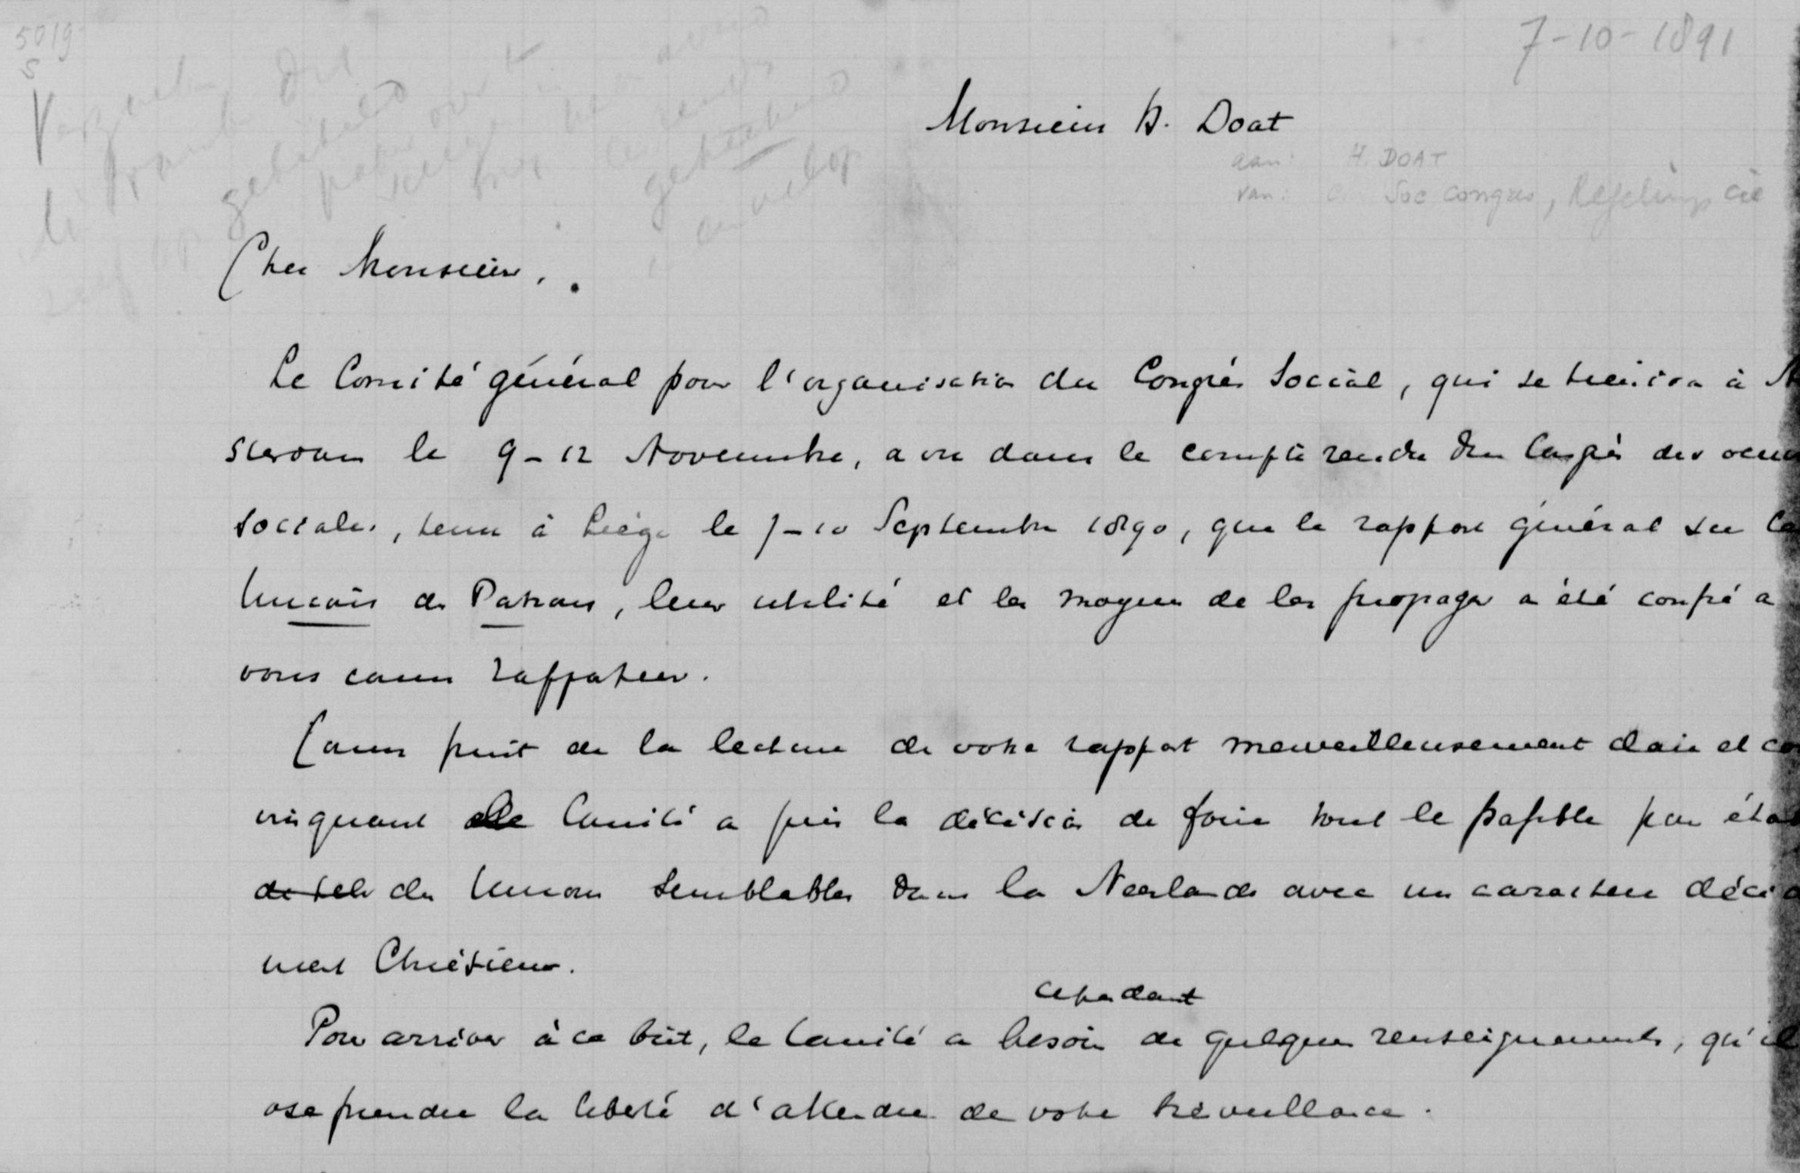 5019
7-10-1891
Monsieur H. Doat
aan: H. DOAT
van: Soc congres,
Cher Monsieur,
Le Comité général pour l'organisation du Congrès Social, qui se tiendra à
sterdam le 9-12 Novembre, a vu dans le compte rendu du Congrès des
sociales, tenu à Liège le 7-10 Septembre 1890, que le rapport général sur
Unions de Patrons, leur utilité et les moyens de les propager a été confié a
vous comme rapporteur.
Comme fruit de la lecture de votre rapport merveilleusement clair et
vinquant le Comité a pris la décision de faire tout le possible pour
de tels des Unions semblables dans la Neerlande avec un caractère
ment Chrétien.
cependant
Pour arriver à ce bût, le Comité a besoin de quelques renseignements, qu'il
ose prendre la liberté d'attendre de votre bienveillance.